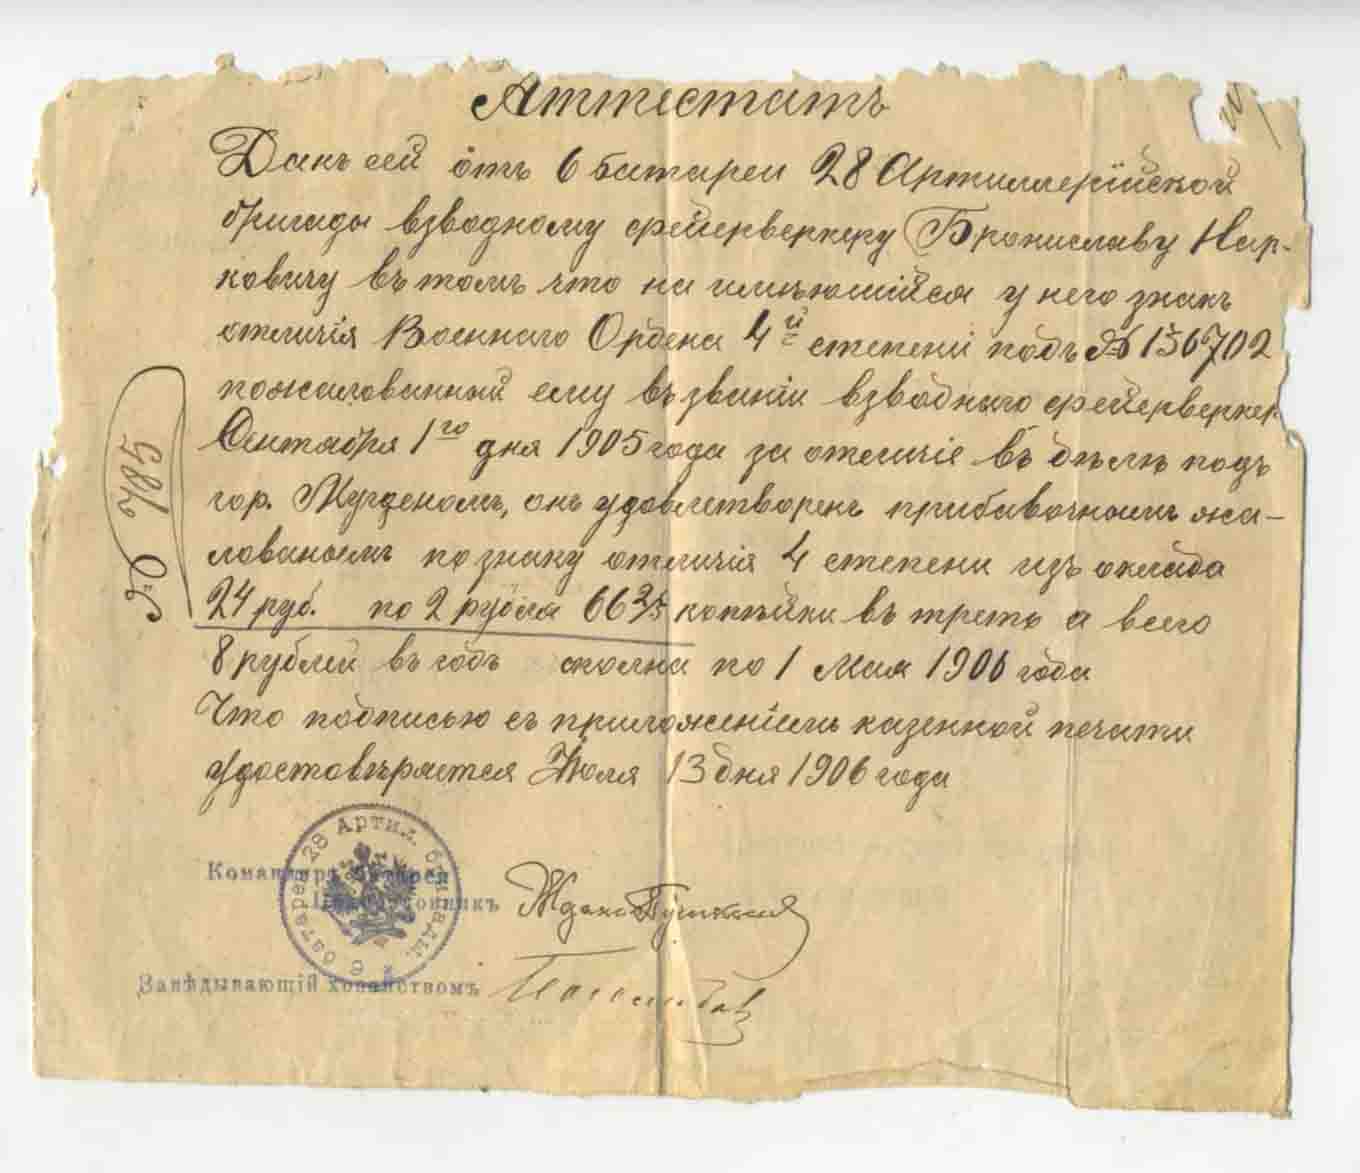 Аттестатъ
Данъ сей отъ 6 батареи 28 Артиллерійской
бригады взводному фейерверкеру Брониславу Нар-
ковичу въ томъ что на имѣющійся у него знакъ
отличія Военнаго Ордена 4й степени подъ № 136702
пожалованный ему въ званіи взводнаго фейерверкер
Сентября 1го дня 1905 года за отличіе въ дѣлѣ подъ
гор. Мукденомъ, онъ удовлетворенъ прибавочнымъ жа-
лованьемъ по знаку отличія 4 степени изъ оклада
24 руб. по 2 рубля 66 2/3 копѣйки въ треть а всего
8 рублей въ годъ сполна по 1 Мая 1906 года
Что подписью съ приложеніемъ казенной печати
удостовѣряется Іюля 13 дня 1906 года
6 батареи 28 Артил. бригады.
Командиръ батареи
Подполковникъ
Завѣдывающій хозяйствомъ